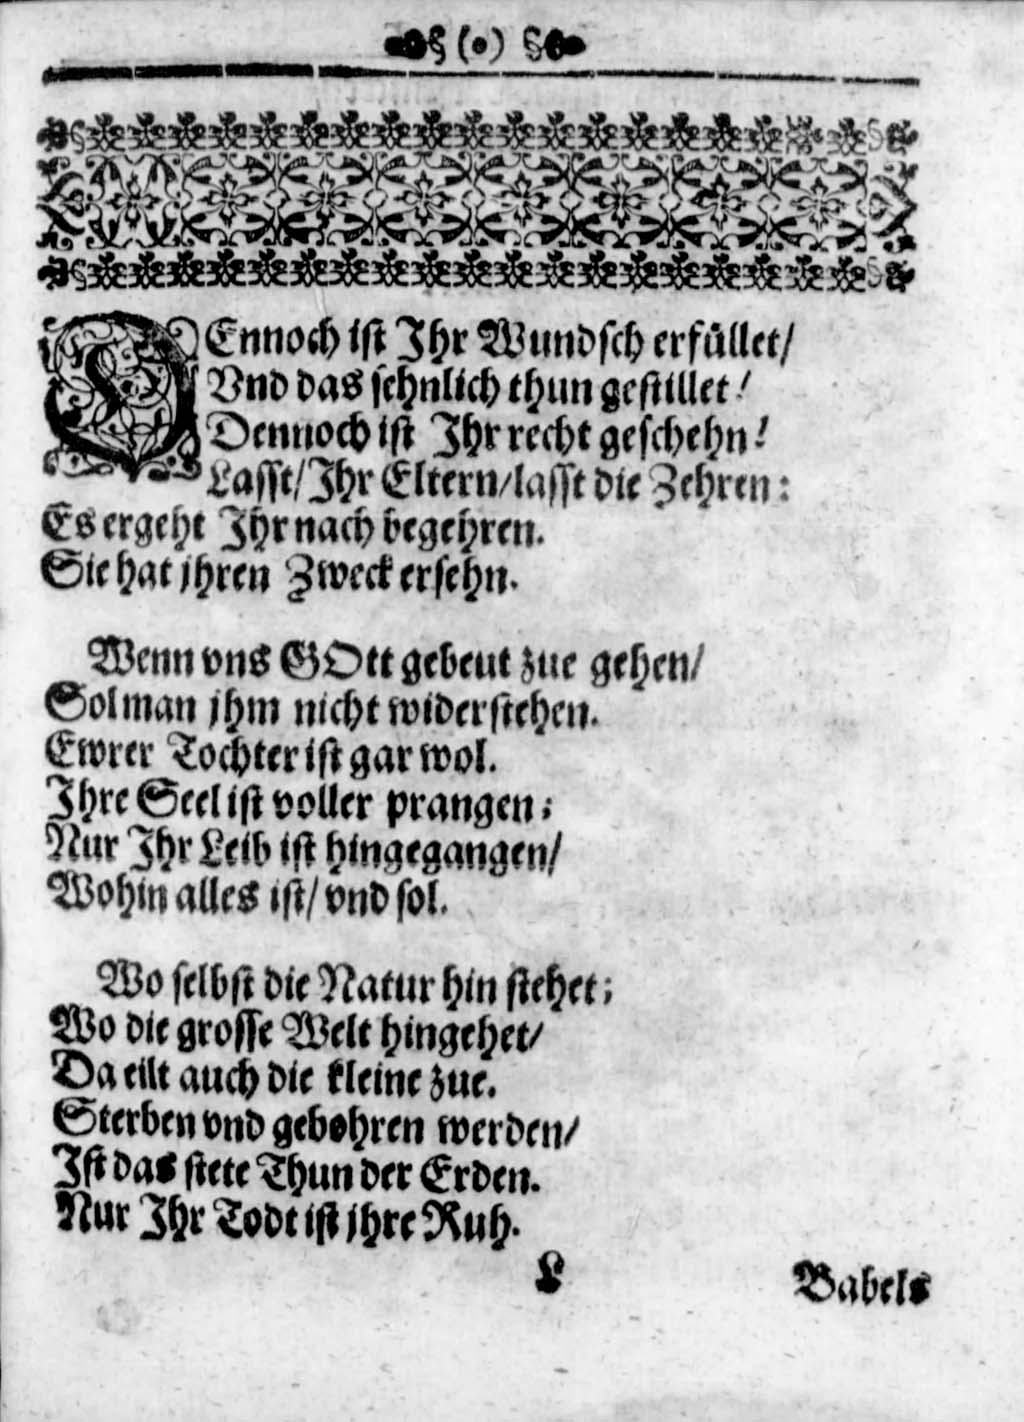 § (0) §
DEnnoch ist Ihr Wundsch erfüllet/
Vnd das sehnlich thun gestillet!
Dennoch ist Ihr recht geschehn!
Lasst/ Ihr Eltern/ lasst die Zehren:
Es ergeht Ihr nach begehren.
Sie hat jhren Zweck ersehn.
Wenn vns GOtt gebeut zue gehen/
Sol man jhm nicht widerstehen.
Ewrer Tochter ist gar wol.
Ihre Seel ist voller prangen;
Nur Ihr Leib ist hingegangen/
Wohin alles ist/ vnd sol.
Wo selbst die Natur hin stehet;
Wo die grosse Welt hingehet/
Da eilt auch die kleine zue.
Sterben vnd gebohren werden/
Ist das stete Thun der Erden.
Nur Ihr Todt ist jhre Ruh.
L
Babels